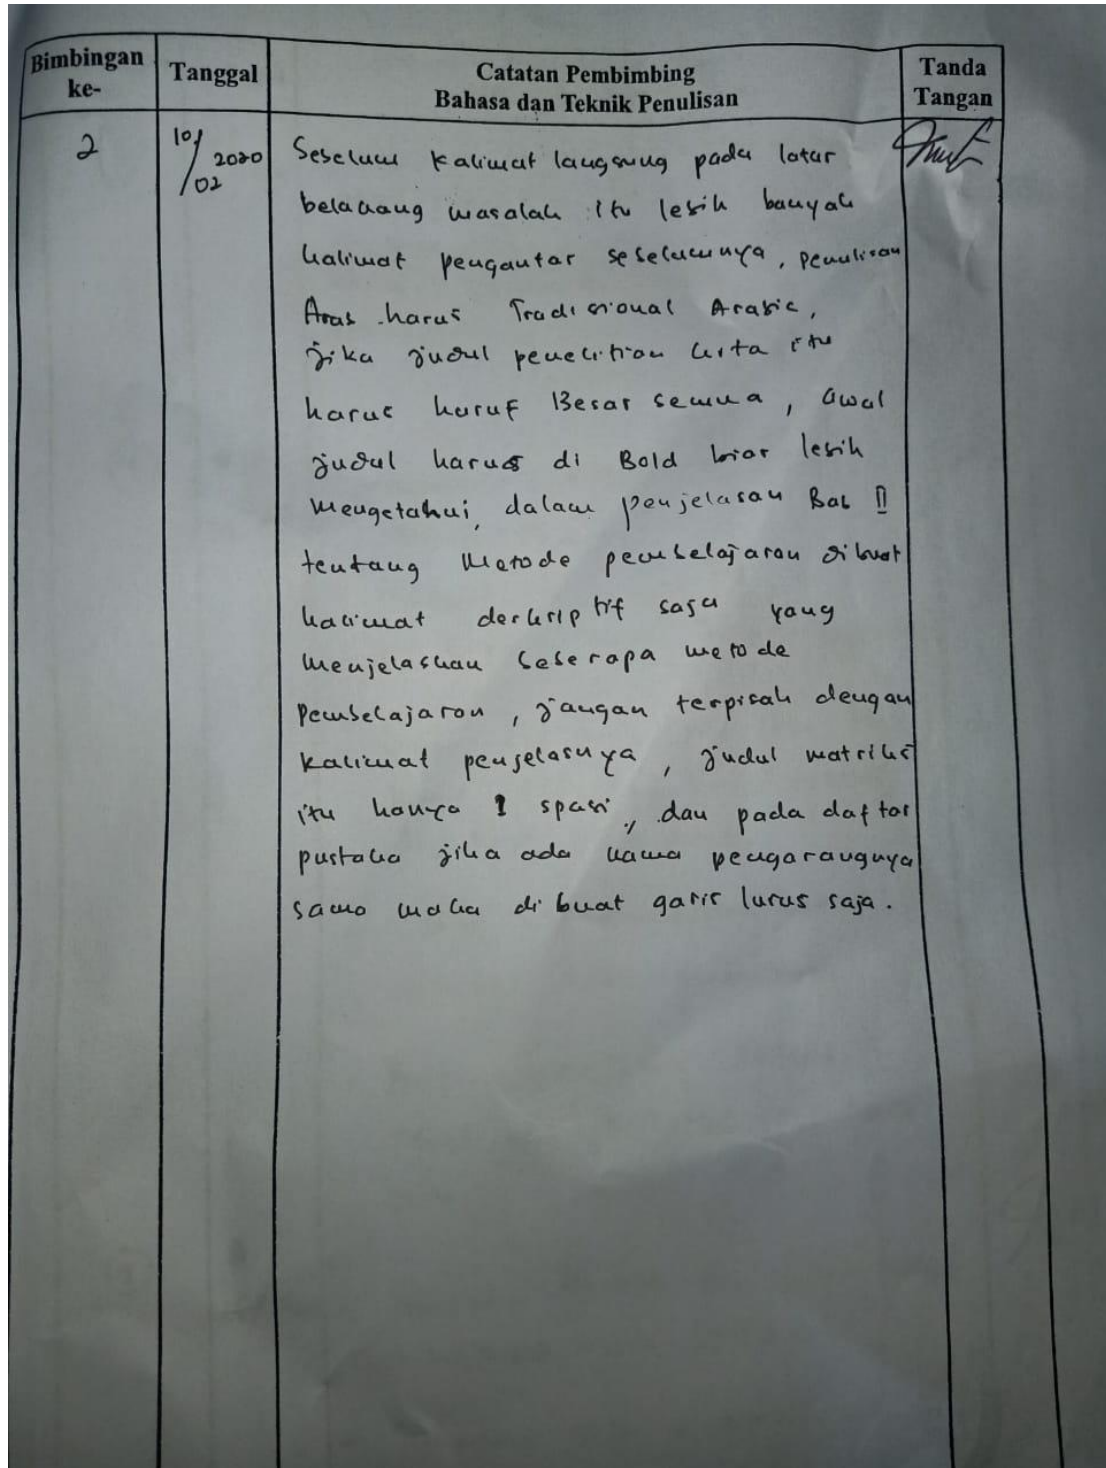 Bimbingan ke-
Tanggal
Catatan Pembimbing
Bahasa dan Teknik Penulisan
Tanda Tangan
2
10/02 2020
Sebelum kalimat langsung pada latar
belakang masalah itu lebih banyak
kalimat pengantar sebelumnya, penulisan
Arab harus Tradisional Arabic,
jika judul penelitian kita itu
harus huruf Besar semua, awal
judul harus di Bold biar lebih
mengetahui, dalam penjelasan Bab II
tentang Metode pembelajaran dibuat
kalimat deskriptif saja yang
menjelaskan beberapa metode
Pembelajaran, jangan terpisah dengan
kalimat penjelasnya, judul matriks
itu hanya 1 spasi, dan pada daftar
pustaka jika ada nama pengarangnya
sama maka di buat garis lurus saja.